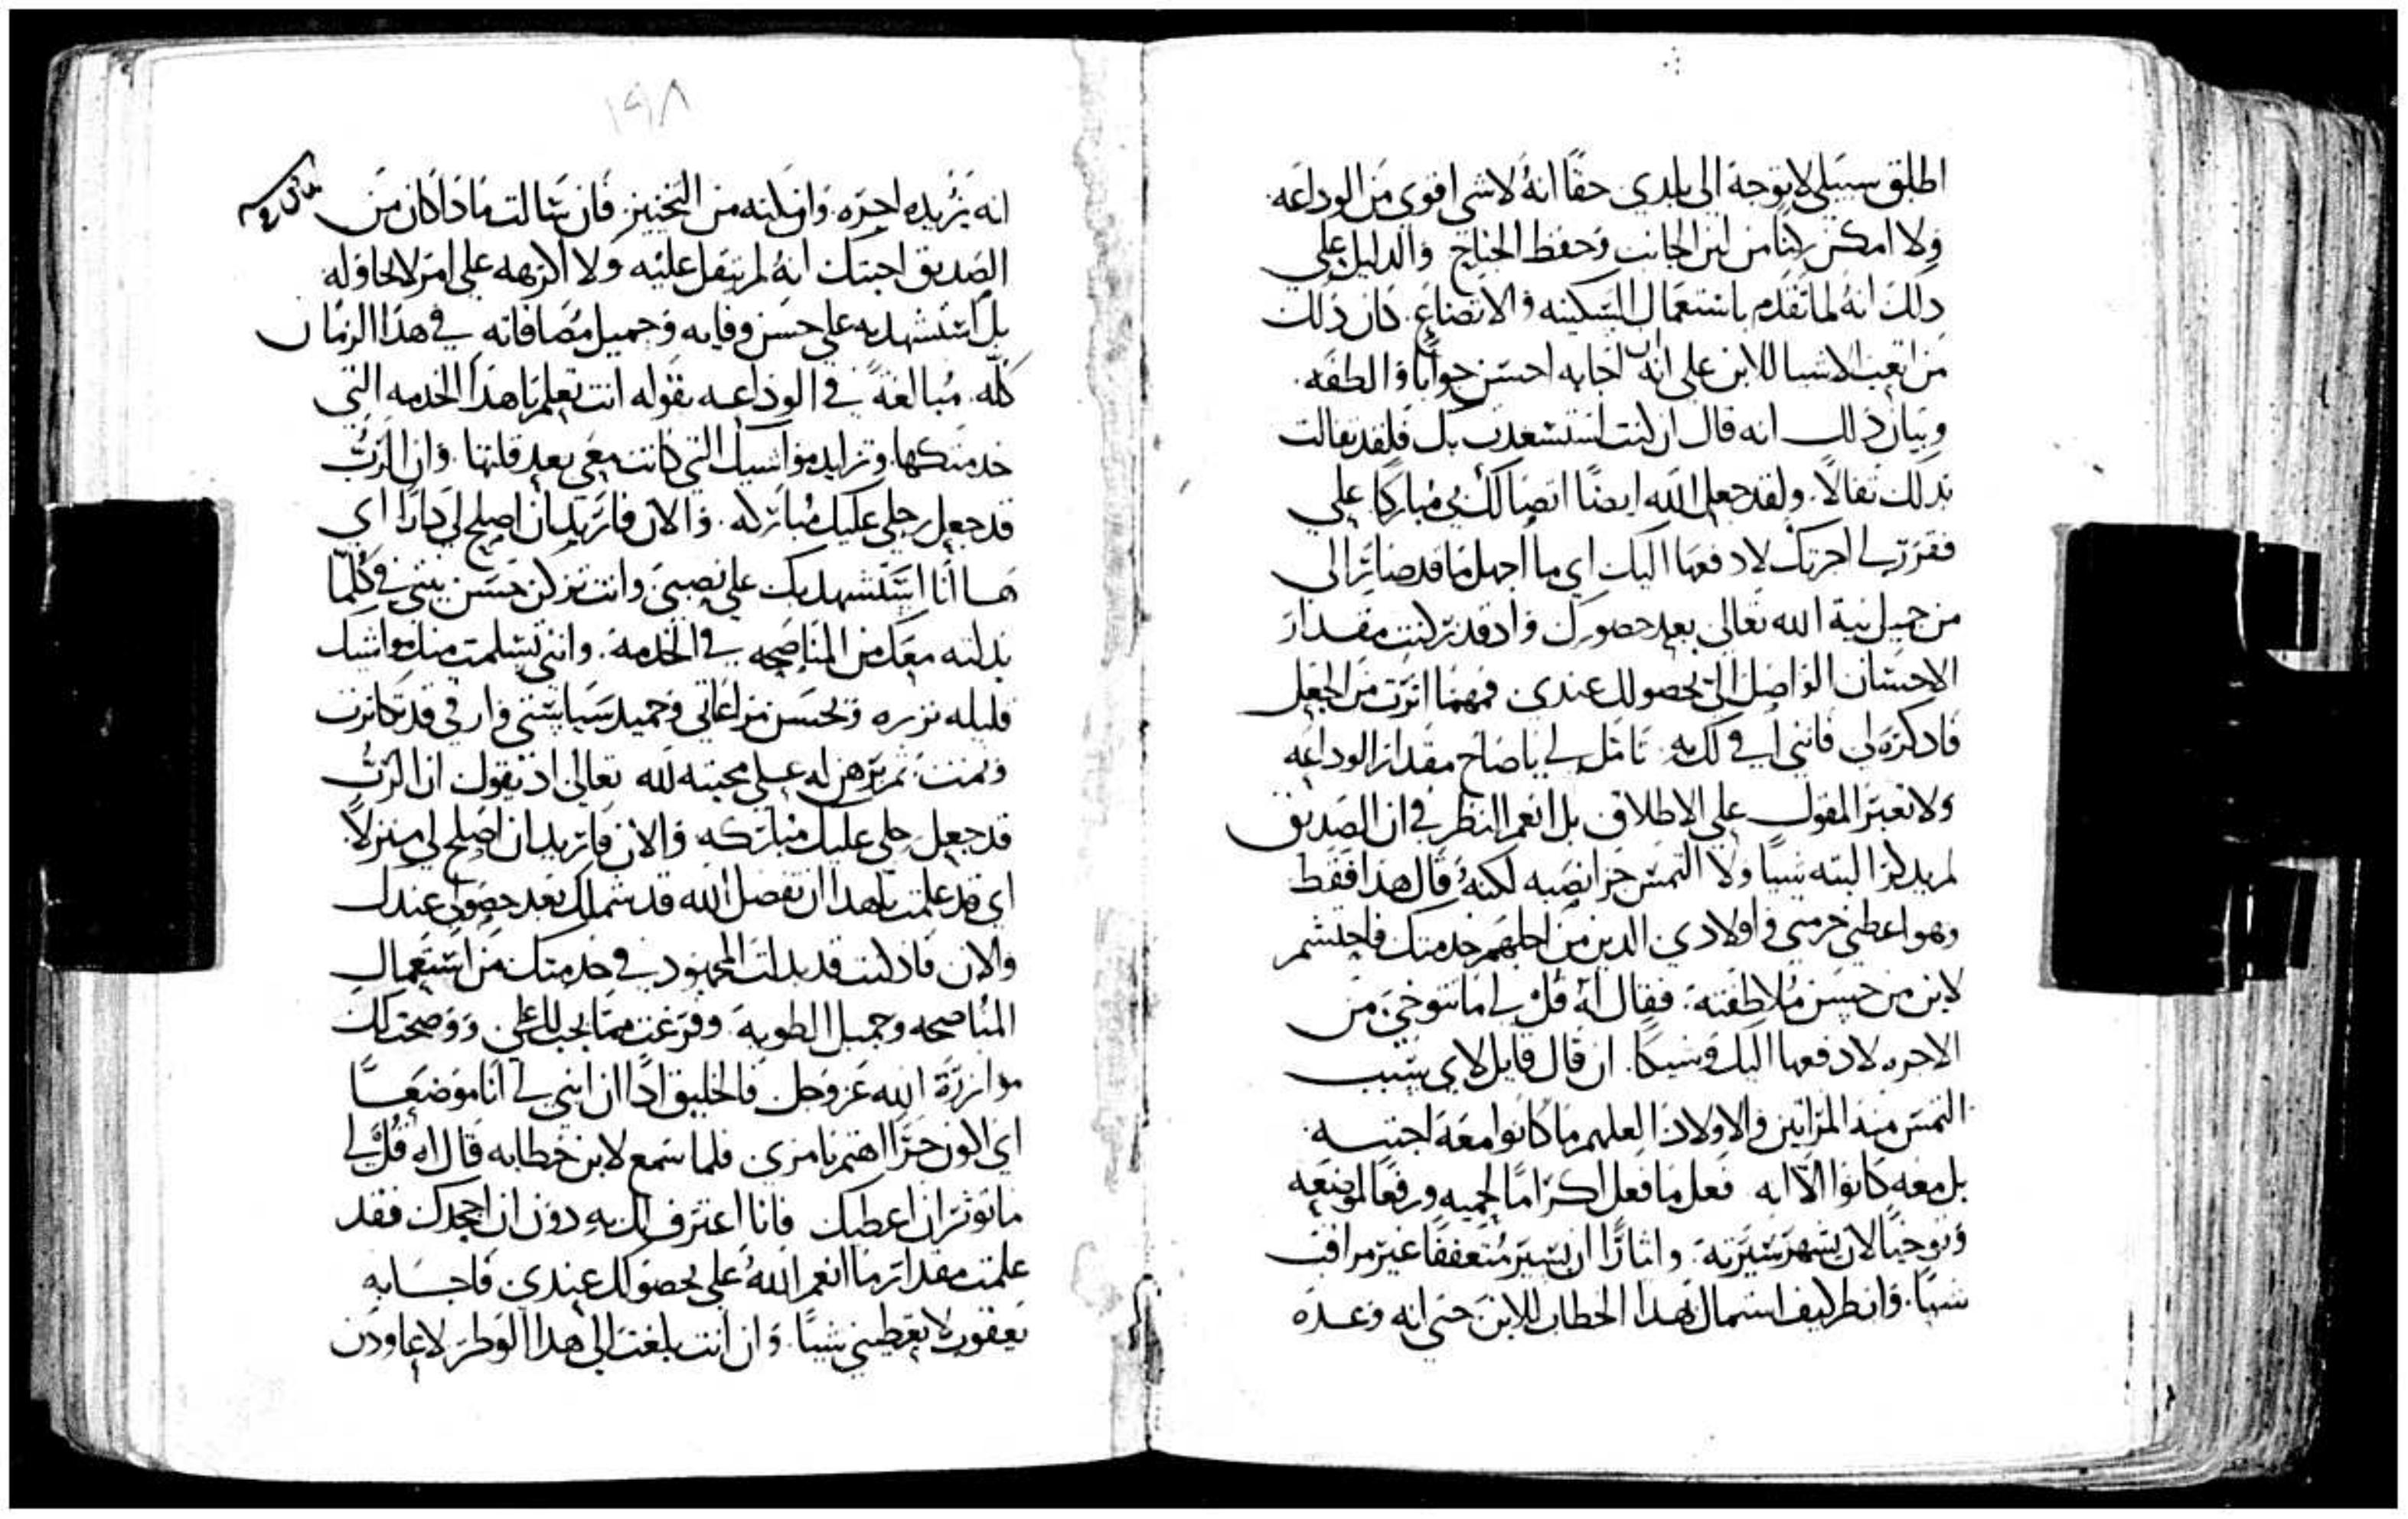 اطلق سبيلي لاتوجه الى بلدي حقًا انهُ لا شي اقوى من الوداعه
ولا امكن ركنًا من لين الجانب وحفظ الجناح والدليل على
ذلك انهُ لما تقدم باستعمال السكينه والاتضاع كان ذلك
من اتعب الاشيا للابن على انه اجابه احسن جوابًا والطفه
وبيان ذلك انه قال ان كنت استسعدت بك فلقد تفالت
بذلك تفالاً ولقد جعل الله ايضًا اتصالك بي مباركًا علي
فقرر لي اجرتك لادفعها اليك اي ما اجهل ما قد صار الي
من جميل نية الله تعالى بعد حضورك واد قد تركنت مقدار
الاحسان الواصل الي بحصولك عندي فمهما اثرت من الجعل
فادكره لي فانني افي لك به تامل لي ياصاح مقدار الوداعه
ولا تعبر المقول على الاطلاق بل انعم النظر في ان الصديق
لم يدكر البته شيا ولا التمس جزا نصبه لكنهُ قال هذا فقط
وهو اعطني حرمي واولادي الدين من اجلهم خدمتك فاحتشم
لابن من حسن ملاطفته فقال لهُ قل لي ما تتوخى من
الاجره لادفعها اليك وشيكًا ان قال قايل لاي سبب
التمس منه المراتين والاولاد العلهم ما كانوا معه اجبته
بل معه كانوا الا انه فعل ما فعل اكرامًا لحميه ورفعًا لموضعه
وتوخيًا لان يشهر سيرته واثارًا ان يسير متعففًا غير مرافق
شيًا وانظر كيف استمال بهدا الخطاب للابن حتى انه وعده
١٩٨
انه يزيده اجره وامكنه من التخيير فان سالت ما دا كان من
الصديق اجبتك انهُ لم يثقل عليه ولا اكرهه على امر لا يحاوله
بل استشهد به على حسن وفايه وجميل مصافاته في هذا الزمان
كله مبالغةً في الوداعه بقوله انت تعلم ياهدا الخدمه التي
خدمتكها وتزايد مواشيك التي كانت معي بعد قلتها وان الرب
قد جعل رجلي عليك مباركه والان فاريد ان اصلح لي دارًا اي
ها انا استشهد بك على نصبي وانت تركن حسن نيتي في كلما
بدلته معك من المناصحه في الخدمه وانني تسلمت منك مواشيك
قليله نزره وبحسن مراعاتي وحميد سياستي وارفي قد تكاثرت
ونمت ثم يبرهن له على محبته لله تعالى اد يقول ان الرب
قد جعل رجلي عليك مباركه والان فاريد ان اصلح لي منزلاً
اي قد علمت ياهدا ان تفضل الله قد شملك بعد حصولي عندك
والان فاد كنت قد بدلت المجهود في خدمتك من استعمال
المناصحه وجميل الطويه وفرغت مما يجب لك علي ووضحت لك
موازرة الله عز وجل فالخليق ادًا ان ابني لي انا موضعًا
اي اكون حرًا اهتم بامري فلما سمع لابن خطابه قال لهُ قل لي
ما توثر ان اعطيك فانا اعترف لك به دون ان اجحدك فقد
علمت مقدار ما انعم اللهُ علي بحصولك عندي فاجابه
يعقوب لا تعطيني شيًا وان انت بلغت الي هدا الوطر لاعاودن